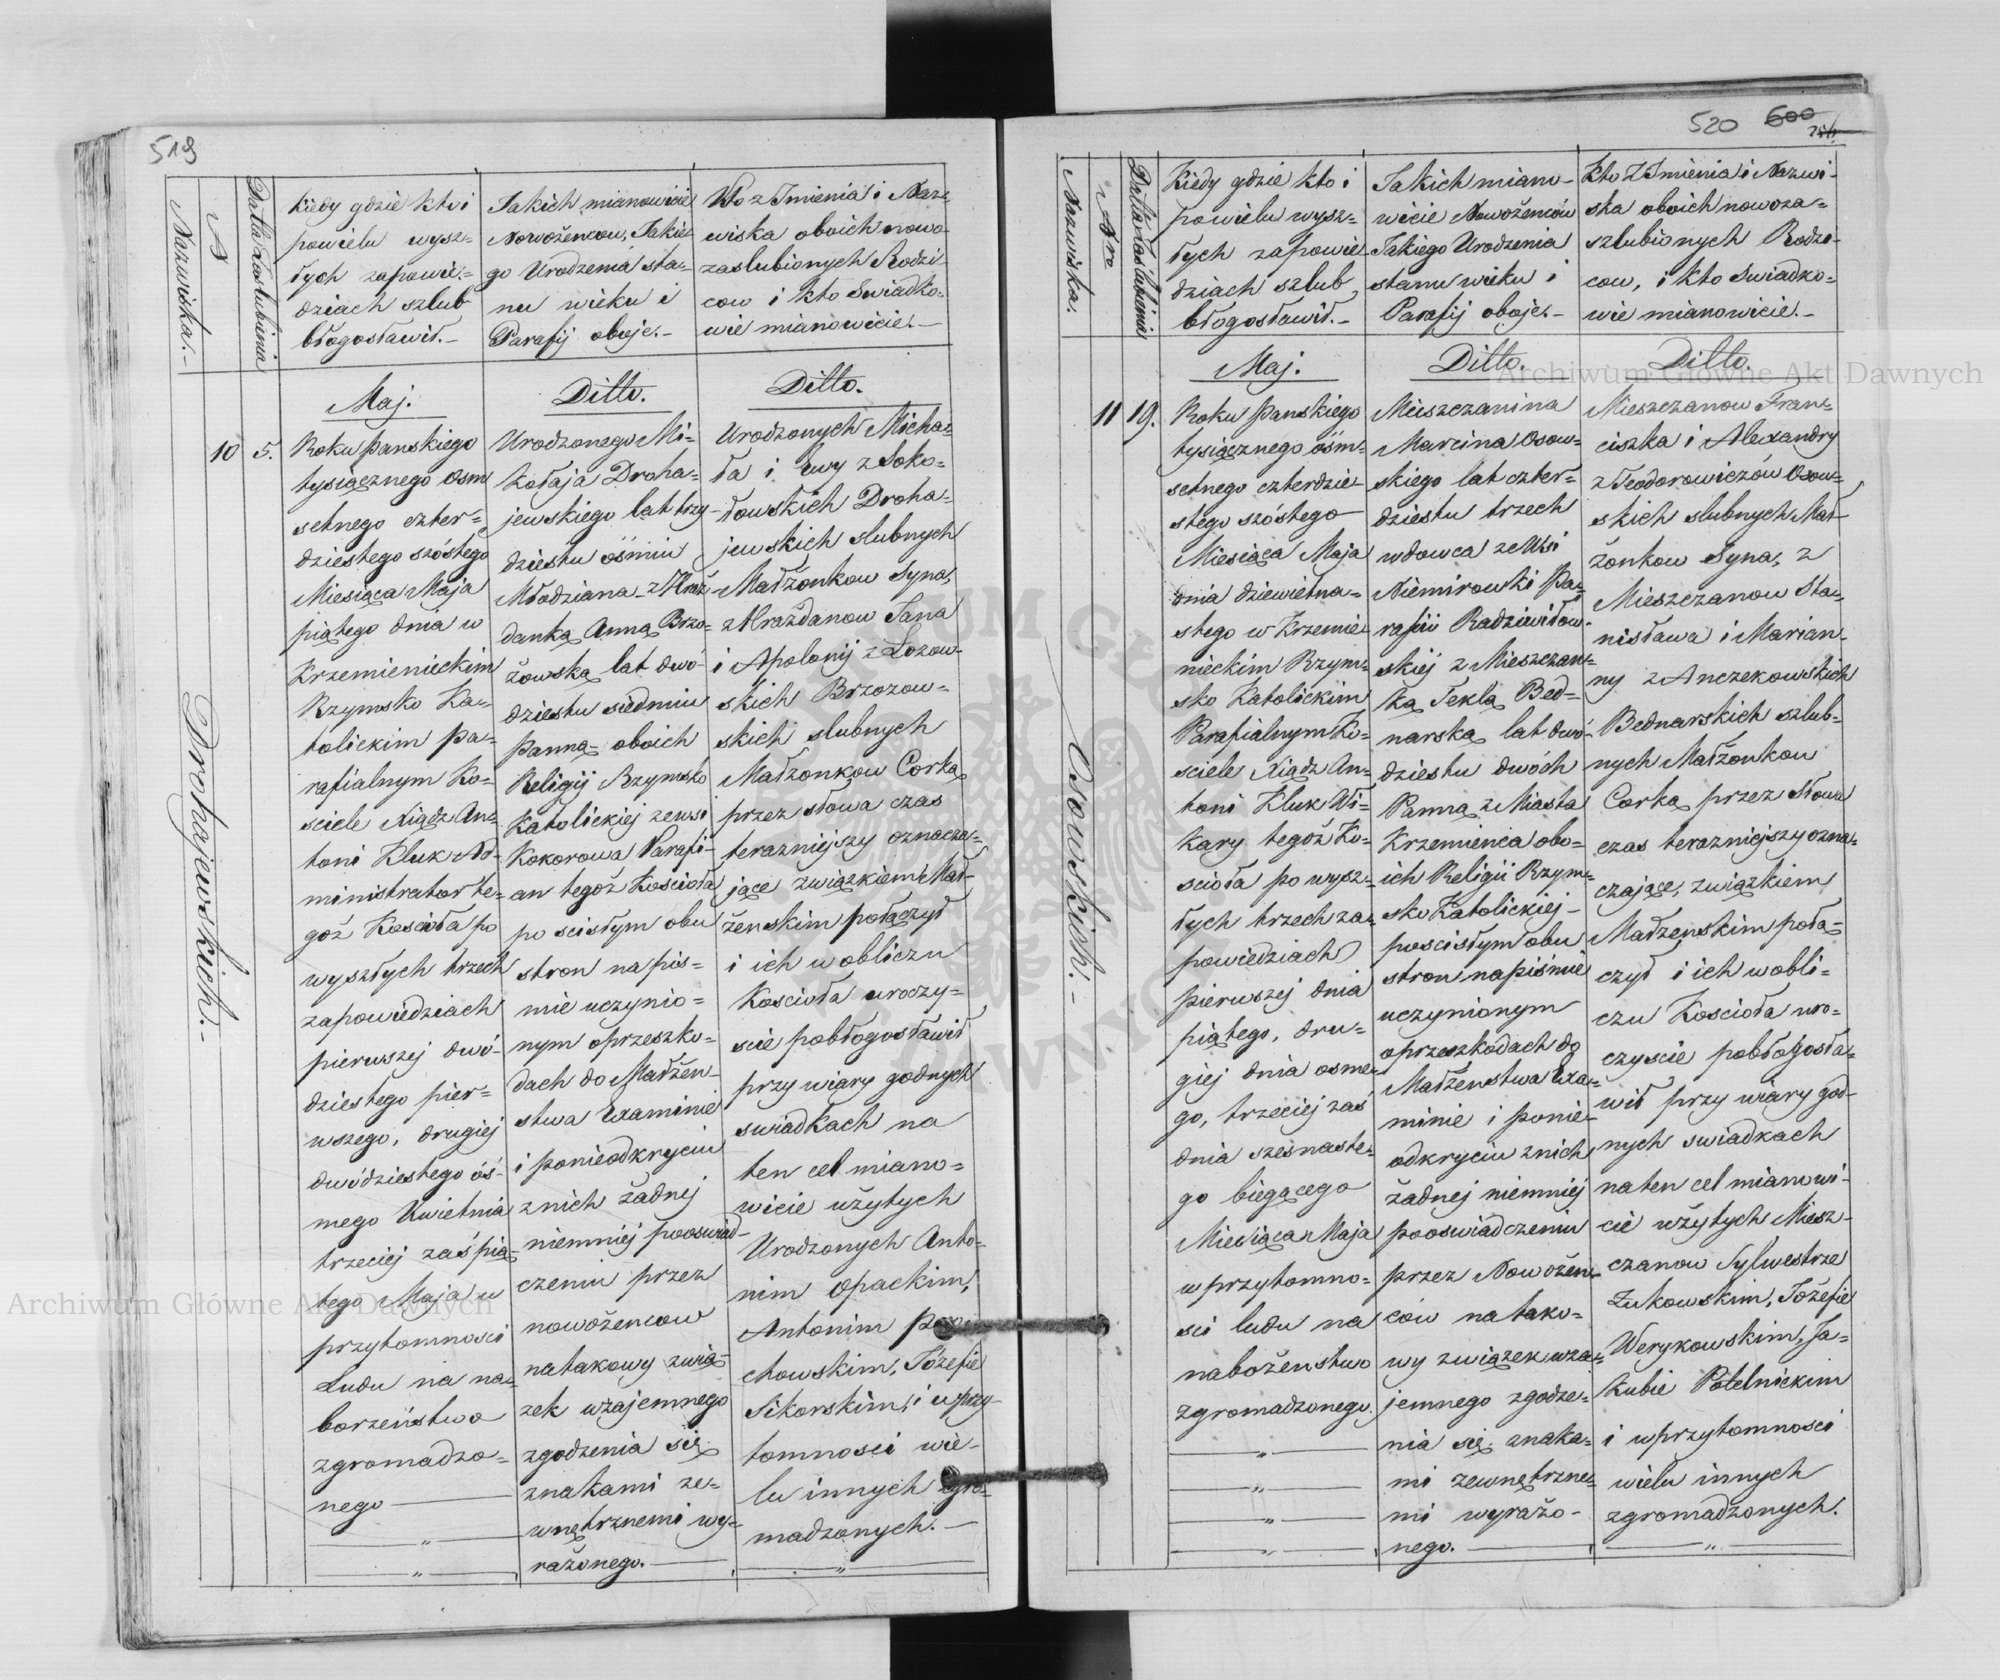 519
Nazwiska.
N
Datta Zaslubinia
Kiedy gdzie kto i
powielu wysz-
łych zapowie-
dziach szlub
błogosławił.
Jakich mianowicie
Nowożencow, Jakie-
go Urodzenia sta-
nu wieku i
Parafij oboje.
Kto z Imienia i Naz-
wiska oboich nowo-
zaslubionych Rodzi-
cow i kto Swiadko-
wie mianowicie.
Drohajewskich.
10
5.
Maj.
Roku Panskiego
tysiącznego osm
setnego czter-
dziestego szóstego
Miesiąca Maja
piątego dnia w
Krzemienieckim
Rzymsko Ka-
tolickim Pa-
rafialnym Ko-
sciele Xiądz An-
toni Kluk Ad-
ministrator te-
goż Kościoła po
wyszłych trzech
zapowiedziach
pierwszej dwó-
dziestego pier-
wszego, drugiej
dwódziestego ós-
mego Kwietnia
trzeciej zaś pią-
tego Maja w
przytomnosci
Ludu na na-
borzeństwo
zgromadzo-
nego
Ditto.
Urodzonego Mi-
kołaja Droha-
jewskiego lat trzy-
dziestu ośmiu
Młodziana z Hraż-
danką Anną Brzo-
zowską lat dwó-
dziestu siedmiu
Panną oboich
Religij Rzymsko
Katolickiej ze wsi
Kokorowa Parafi-
an tegoż Kościoła
po scisłym obu
stron na piś-
mie uczynio-
nym o przeszko-
dach do Małżen-
stwa Examinie
i ponieodkryciu
z nich żadnej
niemniej pooswiad-
czeniu przez
nowożencow
na takowy zwią-
zek wzajemnego
zgodzenia się
znakami ze-
wnętrznemi wy-
rażonego.
Ditto.
Urodzonych Micha-
ła i Ewy z Soko-
łowskich Droha-
jewskich slubnych
Małżonkow Syna,
z Hrażdanow Jana
i Apolonij z Łozow-
skich Brzozow-
skich slubnych
Małżonkow Corką
przez słowa czas
terazniejszy oznacza-
jące związkiem Mał-
żenskim połączył
i ich w obliczu
Kosciola uroczy-
scie pobłogosławił
przy wiary godnych
swiadkach na
ten cel miano-
wicie użytych
Urodzonych Anto-
nim Opackim,
Antonim
chowskim, Józefie
Sikorskim, i w przy-
tomnosci wie-
lu innych zgro-
madzonych.
520 600
Nazwiska.
Nro
Datta Zaslubinia
Kiedy gdzie kto i
powielu wysz-
łych zapowie-
dziach szlub
błogosławił.
Jakich miano-
wicie Nowożencow
Jakiego Urodzenia
stanu wieku i
Parafij oboje.
Kto Z Imienia i Nazwi-
ska oboich nowoza-
szlubionych Rodzi-
cow, i kto Swiadko-
wie mianowicie.
Osowskich.
11
19.
Maj.
Roku Panskiego
tysiącznego ośm-
setnego czterdzie-
stego szóstego
Miesiąca Maja
dnia dziewietna-
stego w Krzemie-
nieckim Rzym-
sko Katolickim
Parafialnym Ko-
sciele Xiądz An-
toni Kluk Wi-
kary tegoż Ko-
scioła po wysz-
łych trzech za-
powiedziach
pierwszej dnia
piątego, dru-
giej dnia osme-
go, trzeciej zaś
dnia szesnaste-
go biegącego
Miesiąca Maja
w przytomno-
sci ludu na
nabożenstwo
zgromadzonego.
Ditto.
Mieszczanina
Marcina Osow-
skiego lat czter-
dziestu trzech
wdowca ze Wsi
Niemirowki Pa-
rafii Radziwiłow-
skiej z Mieszczan-
ką Teklą Bed-
narską lat dwó-
dziestu dwóch
Panną z Miasta
Krzemienca obo-
ich Religii Rzym-
sko Katolickiej
poscisłym obu
stron napiśmie
uczynionym
oprzeszkodach do
Małżenstwa Exa-
minie i ponie-
odkryciu z nich
żadnej niemniej
pooswiadczeniu
przez Nowożen-
ców na tako-
wy związek wza-
jemnego zgodze-
nia się znaka-
mi zewnętrzne-
mi wyrażo-
nego.
Ditto.
Mieszczanow Fran-
ciszka i Alexandry
z Teodorowiczów Osow-
skich slubnych Mał-
żonkow Syna, z
Mieszczanow Sta-
nisława i Marian-
ny z Anczekowskich
Bednarskich szlub-
nych Małżonkow
Corką przez słowa
czas terazniejszy ozna-
czające, związkiem
Małżenskim połą-
czył i ich w obli-
czu Kosciola uro-
czyscie pobłogosła-
wił przy wiary god-
nych swiadkach
na ten cel mianowi-
cie użytych Miesz-
czanow Sylwestrze
Żukowskim, Józefie
Werykowskim, Ja-
kubie Potelnickim
i w przytomnosci
wielu innych
zgromadzonych.
Archiwum Główne Akt Dawnych
Archiwum Główne Akt Dawnych